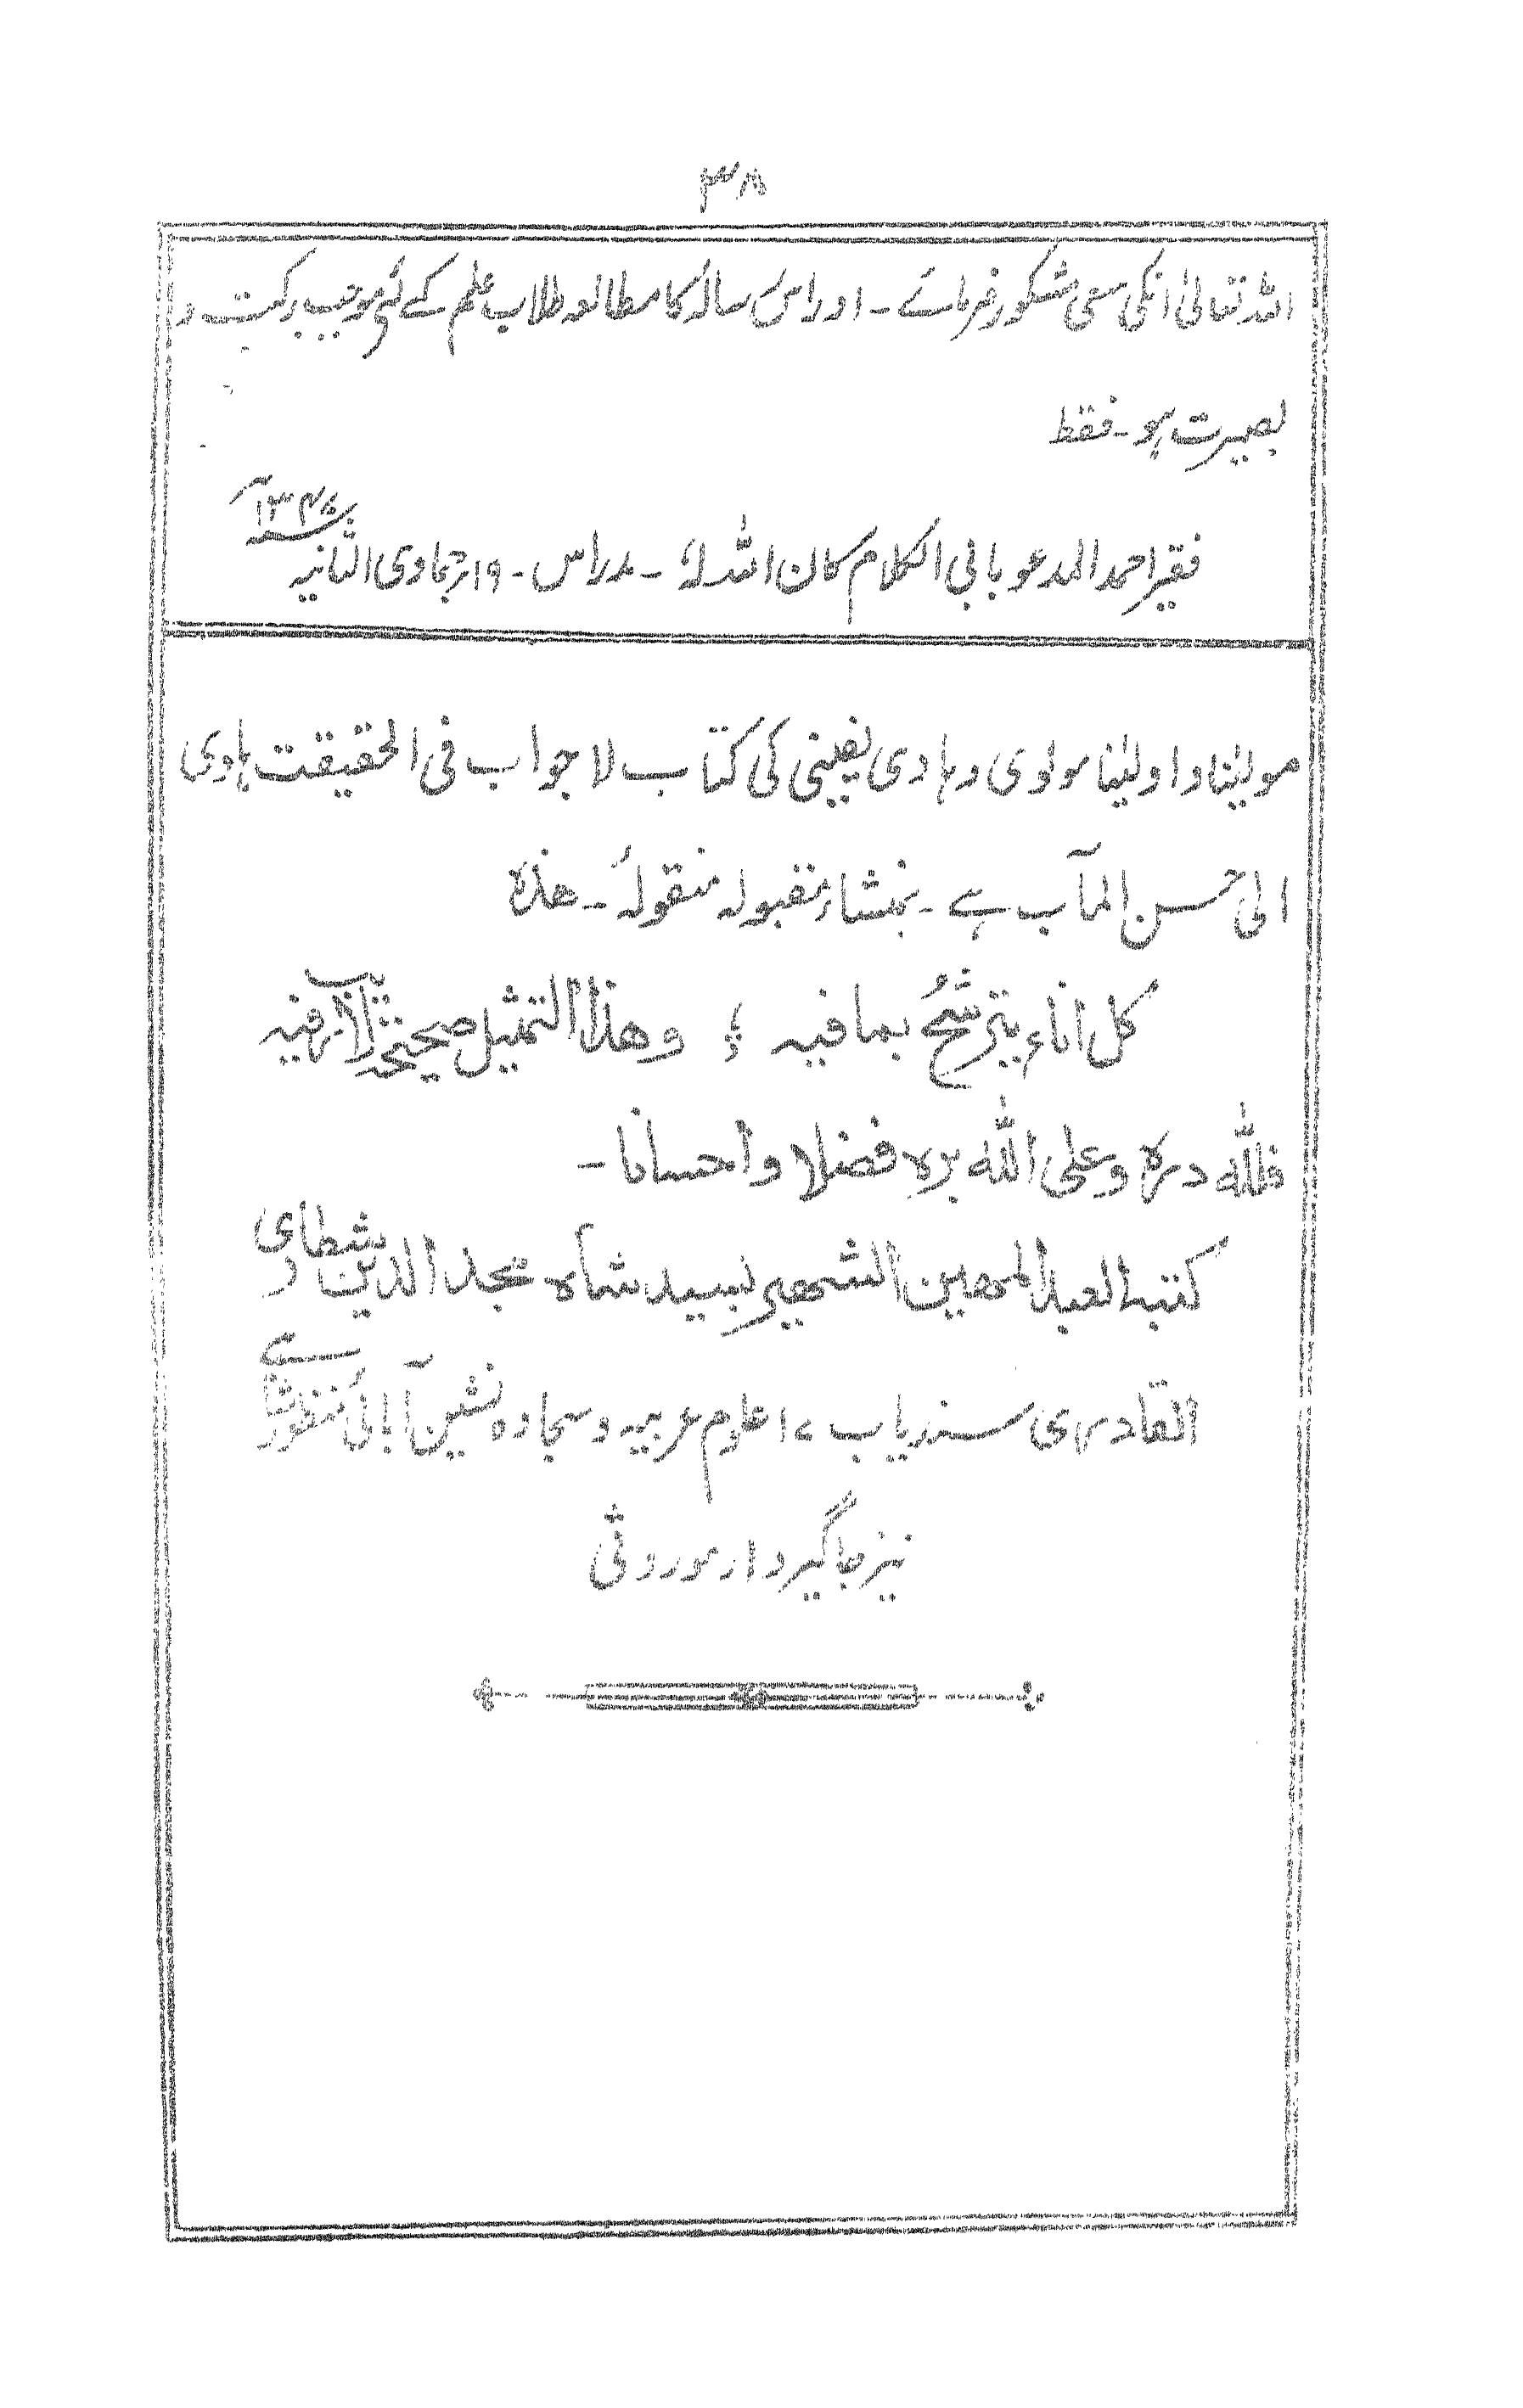 ۳۸
اللہ تعالیٰ انکی سعی مشکور فرمائے ۔ اور اس رسالہ کا مطالعہ طلاب علم کے لئے موجب برکت و
بصیرت ہو ۔ فقط
فقیر احمد المدعو بابی الکلام کان اللہ لہٗ ۔ مدراس ۔ ۱۹ جمادی الثانیہ ۱۳۴۸
مولٰینا و اولٰینا مولوی و ہادی یقینی کی کتاب لاجواب فی الحقیقت ہادی
الیٰ حسن المآب ہے ۔ بمنشاء مقبولہ منقولہٗ ۔ هذه
كل اناء يترشحُ بما فيه ؛ وهذا التمثيل صحيح لاريب فيه
فلله دره وعلى الله بره فضلا واحسانا ۔
كتبه العبد المهين الشهير بسيد شاه محمد الدين شطاري
القادری سندیاب علوم عربیہ و سجادہ نشین آبائی
نیز جاگیردار موروثی